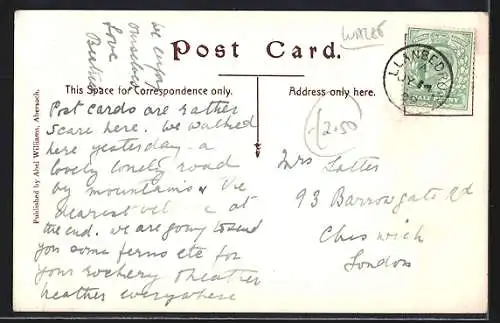 we enjoy
ourselves
Love
WALES
Post Card.
LLANBEDR
HALFPENNY
This Space for Correspondence only.
Address only here.
Published by Abel Williams, Aberavach.
Post cards are rather
scarce here. We walked
here yesterday - a
lovely lonely road
by mountains & the
nearest at
the end. We are going to send
you some ferns etc for
your rockery & heather
heather everywhere
2.50
Mrs Latter
93 Barrowgate Rd
Chiswick
London